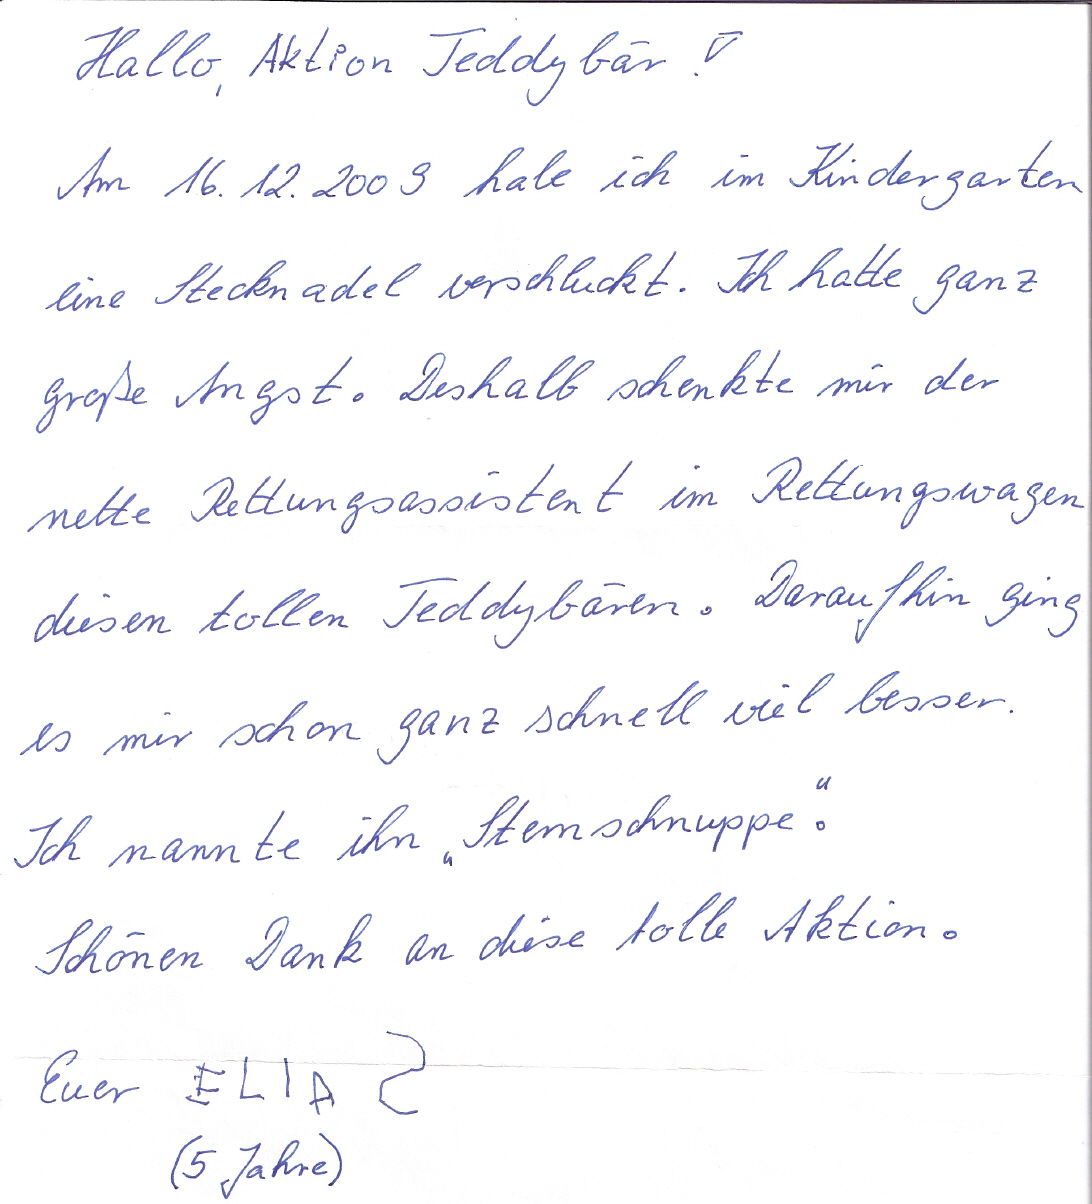 Hallo, Aktion Teddybär!
Am 16.12.2009 habe ich im Kindergarten
eine Stecknadel verschluckt. Ich hatte ganz
große Angst. Deshalb schenkte mir der
nette Rettungsassistent im Rettungswagen
diesen tollen Teddybären. Daraufhin ging
es mir schon ganz schnell viel besser.
Ich nannte ihn „Sternschnuppe“.
Schönen Dank an diese tolle Aktion.
Euer ELIAS
(5 Jahre)